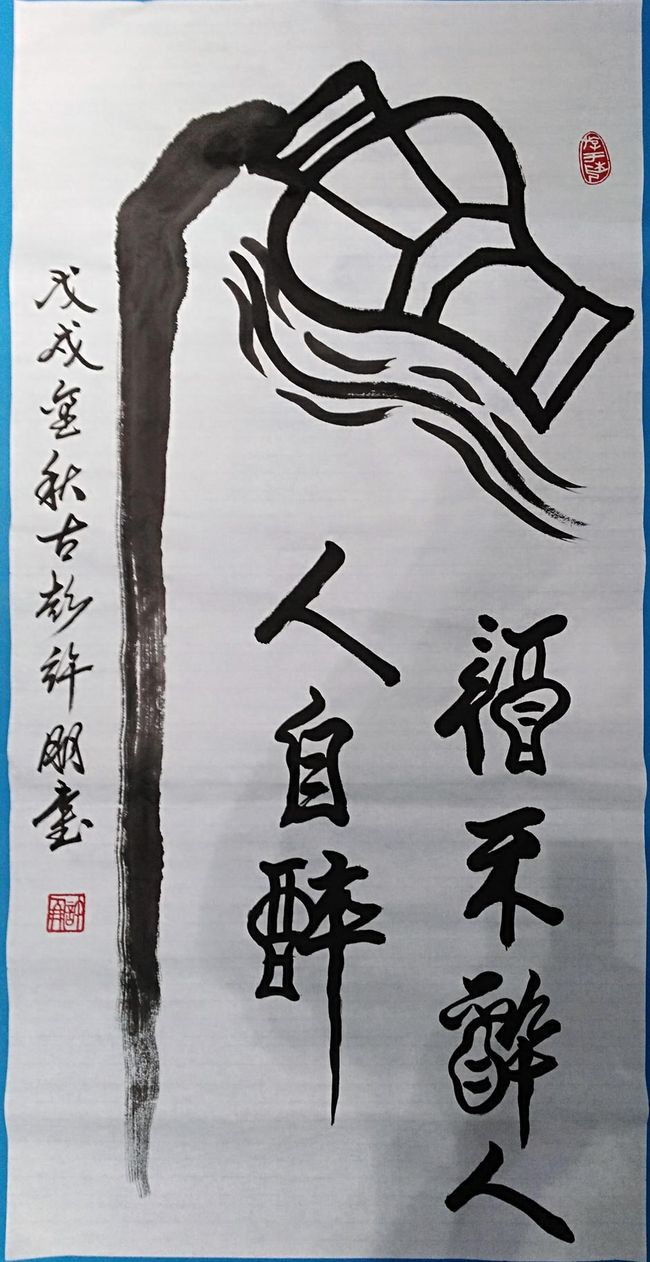 福不醉人
人自醉
戊戌金秋古彭许朋書